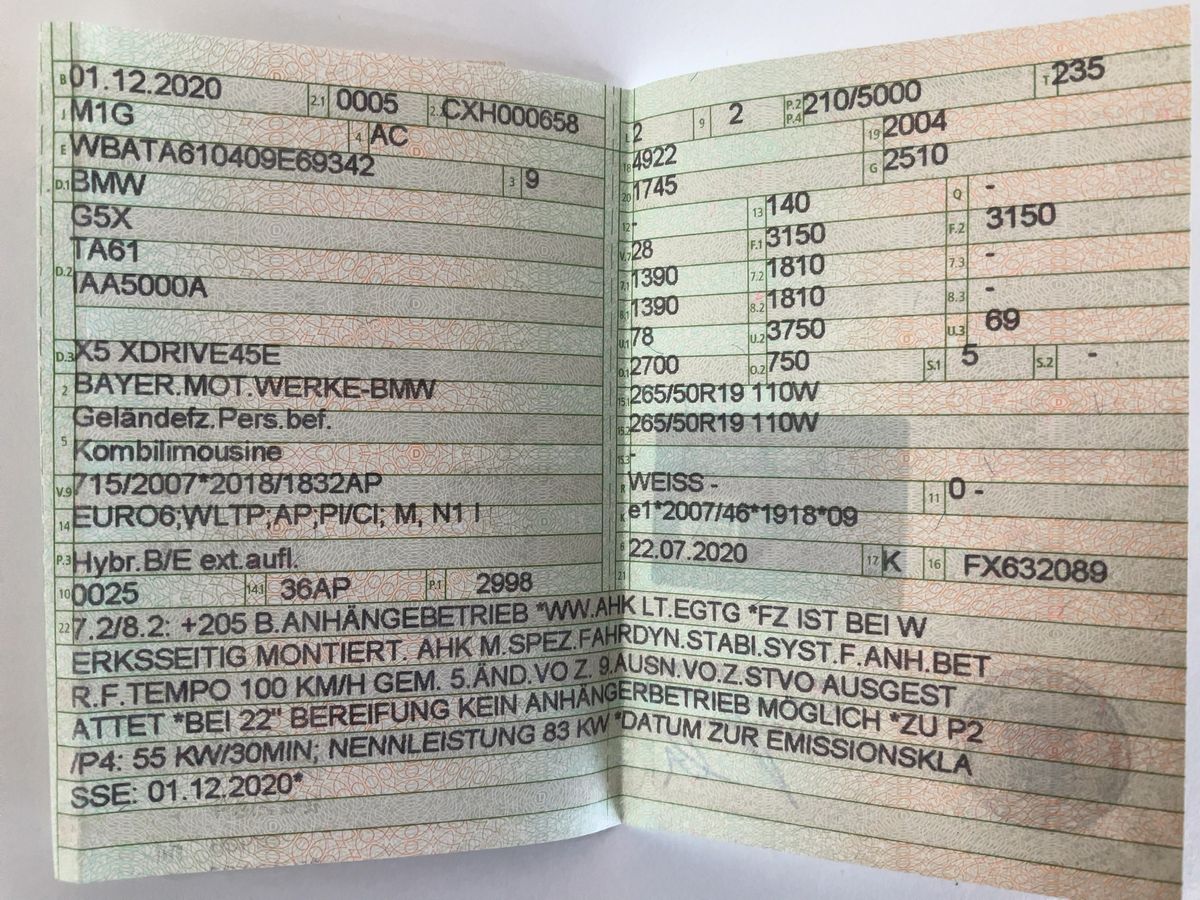 B 01.12.2020 2.1 0005 2.2 CXH000658
J M1G 4 AC
E WBATA610409E69342 3 9
D.1 BMW
G5X
D.2 TA61
IAA5000A
D.3 X5 XDRIVE45E
2 BAYER.MOT.WERKE-BMW
5 Geländefz.Pers.bef.
Kombilimousine
V.9 715/2007*2018/1832AP
14 EURO6;WLTP;AP;PI/CI; M, N1 I
P.3 Hybr.B/E ext.aufl.
10 0025 14.1 36AP P.1 2998
L 2 9 2 P.2 P.4 210/5000 T 235
18 4922 19 2004
20 1745 G 2510
12 - 13 140 Q -
V.7 28 F.1 3150 F.2 3150
7.1 1390 7.2 1810 7.3 -
8.1 1390 8.2 1810 8.3 -
U.1 78 U.2 3750 U.3 69
O.1 2700 O.2 750 S.1 5 S.2 -
15.1 265/50R19 110W
15.2 265/50R19 110W
15.3 -
R WEISS - 11 0 -
K e1*2007/46*1918*09
6 22.07.2020 17 K 16 FX632089
21
22 7.2/8.2: +205 B.ANHÄNGEBETRIEB *WW.AHK LT.EGTG *FZ IST BEI W
ERKSSEITIG MONTIERT. AHK M.SPEZ.FAHRDYN.STABI.SYST.F.ANH.BET
R.F.TEMPO 100 KM/H GEM. 5.ÄND.VO Z. 9.AUSN.VO.Z.STVO AUSGEST
ATTET *BEI 22" BEREIFUNG KEIN ANHÄNGERBETRIEB MÖGLICH *ZU P2
/P4: 55 KW/30MIN; NENNLEISTUNG 83 KW *DATUM ZUR EMISSIONSKLA
SSE: 01.12.2020*